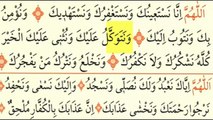 اَللّٰهُمَّ اِنَّا نَسْتَعِينُكَ وَنَسْتَغْفِرُكَ وَنَسْتَهْدِيكَ ۞ وَنُؤْمِنُ
بِكَ وَنَتُوبُ اِلَيْكَ ۞ وَنَتَوَكَّلُ عَلَيْكَ وَنُثْنِى عَلَيْكَ الْخَيْرَ
كُلَّهُ نَشْكُرُكَ وَلَا نَكْفُرُكَ ۞ وَنَخْلَعُ وَنَتْرُكُ مَنْ يَفْجُرُكَ ۞
اَللّٰهُمَّ اِيَّاكَ نَعْبُدُ وَلَكَ نُصَلِّى وَنَسْجُدُ ۞ وَاِلَيْكَ نَسْعٰى وَنَحْفِدُ
نَرْجُوا رَحْمَتَكَ وَنَخْشٰى عَذَابَكَ ۞ اِنَّ عَذَابَكَ بِالْكُفَّارِ مُلْحِقٌ